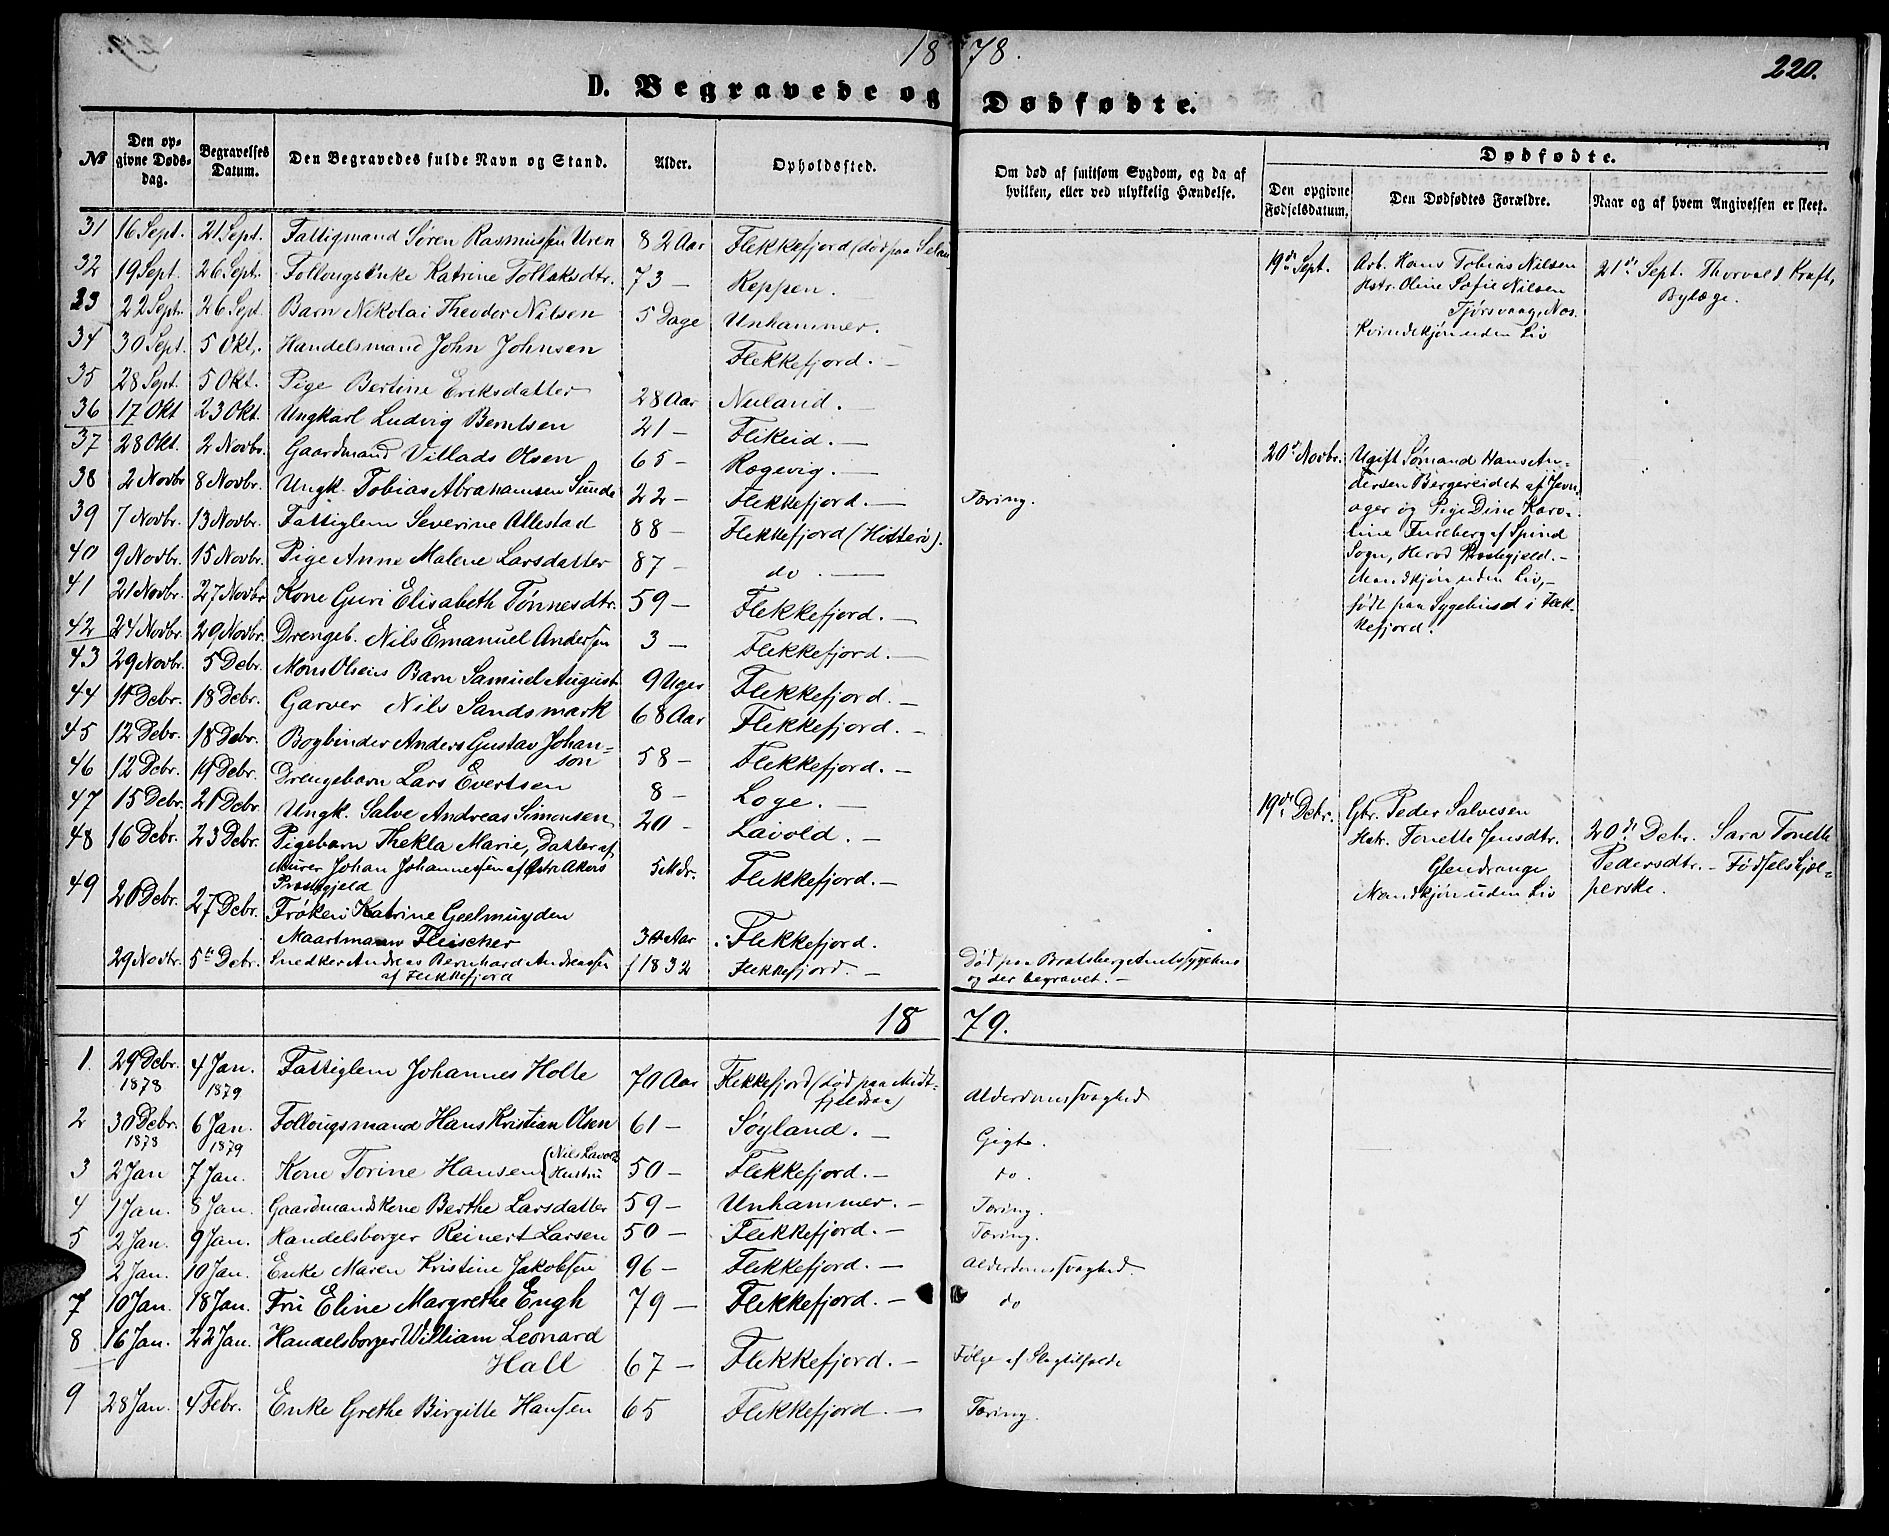 1878.
220.
D. Begravede og Dødfødte.
No
Den opgivne Dødsdag.
Begravelses Datum.
Den Begravedes fulde Navn og Stand.
Alder.
Opholdssted.
Om død af smitsom Sygdom, og da af hvilken, eller ved ulykkelig Hændelse.
Dødfødte.
Den opgivne Fødselsdatum.
Den Dødfødtes Forældre.
Naar og af hvem Angivelsen er skeet.
31 16 Sept. 21 Sept. Fattigmand Sören Rasmussen Uren 82 Aar Flekkefjord (død paa
32 19 Sept. 26 Sept. Follougsenke Katrine Tollaksdtr. 73 – Reppen.
33 22 Sept. 26 Sept. Barn Nikolai Theodor Nilsen 5 Dage Unhammer.
34 30 Sept. 5 Okt. Handelsmand John Johnsen Flekkefjord. –
35 28 Sept. 5 Okt. Pige Bertine Eriksdatter 28 Aar Nuland. –
36 17 Okt 23 Okt. Ungkarl Ludvig Berntsen 21 – Flikeid. –
37 28 Okt. 2 Novbr. Gaardmand Villads Olsen 65 – Rogevig. –
38 2 Novbr 8 Novbr. Ungk. Tobias Abrahamsen Sunde 22 – Flekkefjord. – Tæring.
39 7 Novbr. 13 Novbr. Fattiglem Severine Allestad 88 – Flekkefjord (Hitterö).
40 9 Novbr. 15 Novbr. Pige Anne Malene Larsdatter 87 – do. –
41 21 Novbr. 27 Novbr Kone Guri Elisabeth Tønnesdtr. 59 – Flekkefjord. –
42 24 Novbr. 29 Novbr. Drengeb. Nils Emanuel Andersen 3 – Flekkefjord. –
43 29 Novbr. 5 Debr. Mons Olsens Barn Samuel August 9 Uger Flekkefjord. –
44 11 Debr. 18 Debr. Garver Nils Sandsmark 68 Aar Flekkefjord. –
45 12 Debr. 18 Debr. Bogbinder Anders Gustav Johan=
son 58 – Flekkefjord. –
46 12 Debr. 19 Debr. Drengebarn Lars Evertsen 8 – Loge. –
47 15 Debr. 21 Debr. Ungk. Salve Andreas Simonsen 20 – Lavold. –
48 16 Debr. 23 Debr. Pigebarn Thekla Marie, Datter af
Murer Johan Johannessen af Østre Akers
Præstegjeld 5 Mdr. Flekkefjord. –
49 20 Debr. 27 Debr. Frøken Katrine Geelmuyden
Maartmann Fleischer Aar Flekkefjord.
29 Novbr. 5te Debr. Snedker Andreas Bernhard Andreassen
af Flekkefjord f 1832 Flekkefjord. – Død paa Bratsberg Amtssygehus
og der begravet. –
19de Sept. Arb. Hans Tobias Nilsen
Hstr. Oline Sofie Nilsen
Tjörsvaag, Nes.
Kvindekjøn uden Liv
21de Sept. Thorvald Kraft,
Bylæge.
20de Novbr. Ugift Sømand Hans An=
dersen Bergereidet af
ager og Pige Dine Karo=
line Furberg af Spind
Sogn, Herod Præstegjeld. –
Mandkjøn uden Liv, –
født paa Sygehuset i Flek=
kefjord.
19de Debr. Gbr. Peder Salvesen
Hstr. Tonette Jensdtr.
Glendrange
Mandkjøn uden Liv
20de Debr. Sara Tonette
Pedersdtr. – Fødselshjæl=
perske.
1879.
1. 29 Debr. 1878 4 Jan. 1879 Fattiglem Johannes Holte 70 Aar Flekkefjord (død paa Midt=
fjeldsaa) Alderdomssvaghed
2 30 Debr. 1878 6 Jan. 1879 Follougsmand Hans Kristian Olsen 61 – Søyland. – Gigt.
3 2 Jan 7 Jan. Kone Torine Hansen (Nils Lavolds
Hustru 50 – Flekkefjord. – do.
4 1 Jan. 8 Jan. Gaardmandskone Berthe Larsdatter 59 – Unhammer. – Tæring.
5 2 Jan. 9 Jan. Handelsborger Reinert Larsen 50 – Flekkefjord. – Tæring.
2 Jan. 10 Jan. Enke Maren Kristine Jakobsen 96 – Flekkefjord. – Alderdomssvaghed.
7 10 Jan. 18 Jan. Fru Eline Margrethe Engh 79 – Flekkefjord. – do
8 16 Jan. 22 Jan. Handelsborger William Leonard
Hall 67 – Flekkefjord. – Følge af Slagtilfælde
9 28 Jan. 4 Febr. Enke Grethe Birgitte Hansen 65 Flekkefjord. – Tæring.